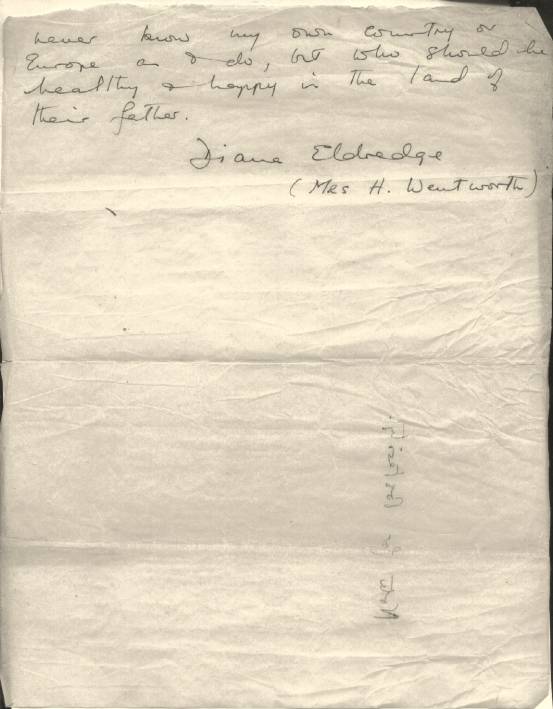 never know my own country or
Europe as I do, but who should be
healthy & happy in the land of
their father.
Diana Eldredge
(Mrs H. Wentworth)